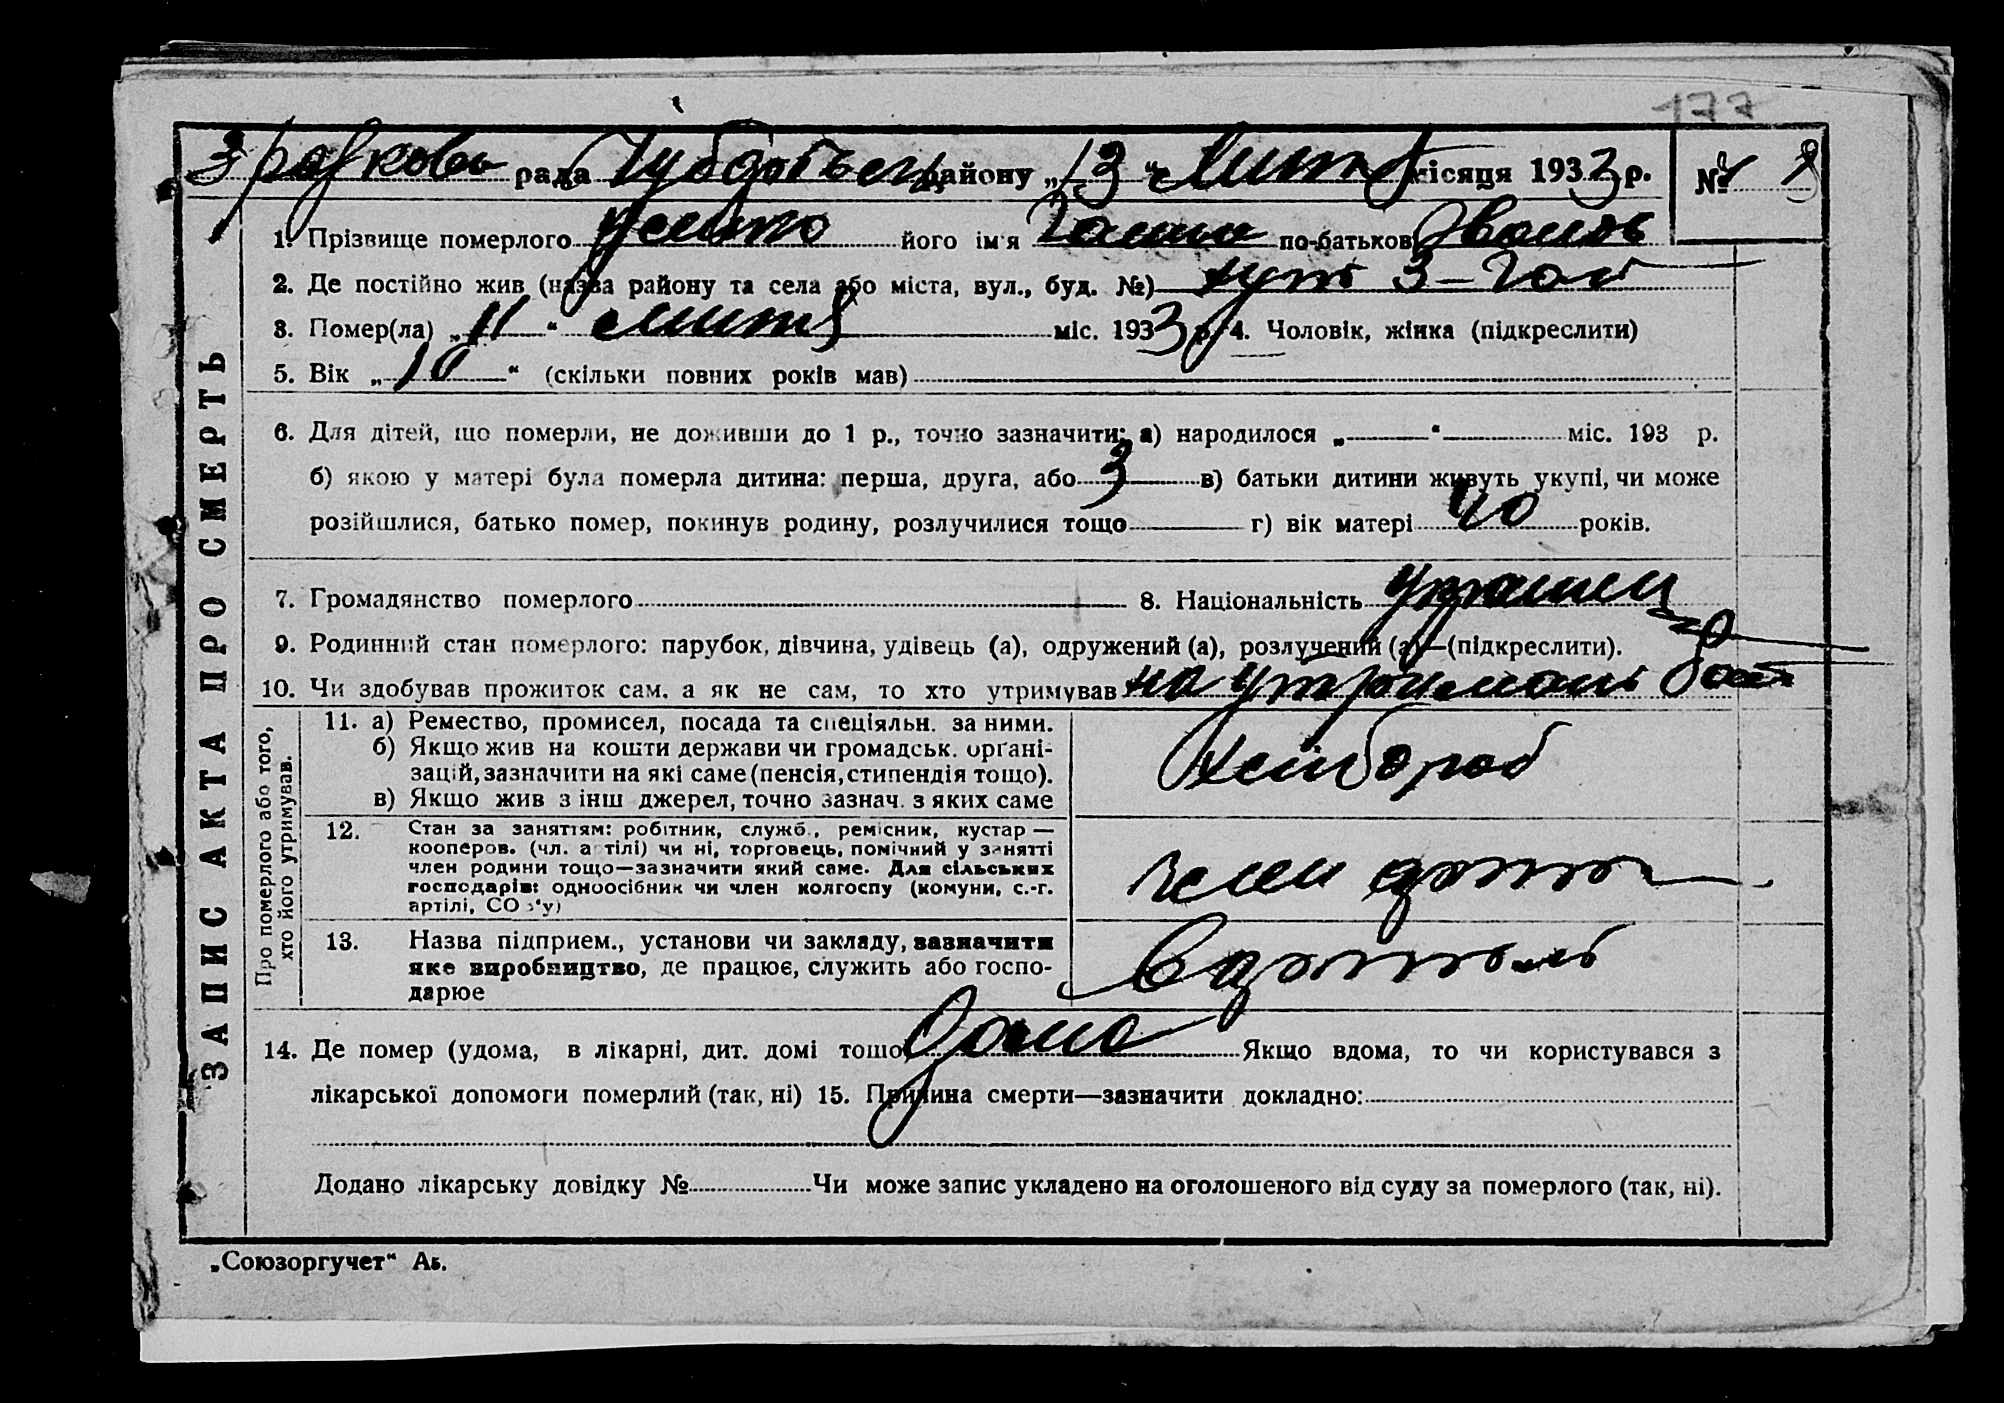 177
рада району „13“ Лют місяця 1933 р. №
1. Прізвище померлого його ім'я по-батькові Іванов
2. Де постійно жив (назва району та села або міста, вул., буд. №) хут
3. Помер(ла) „11“ Лют міс. 1933 р. 4. Чоловік, жінка (підкреслити)
5. Вік „10“ (скільки повних років мав)
6. Для дітей, що померли, не доживши до 1 р., точно зазначити: а) народилося „ “ міс. 193 р.
б) якою у матері була померла дитина: перша, друга, або 3 в) батьки дитини живуть укупі, чи може
розійшлися, батько помер, покинув родину, розлучилися тощо г) вік матері 40 років.
7. Громадянство померлого 8. Національність
9. Родинний стан померлого: парубок, дівчина, удівець (а), одружений (а), розлучений (а)—(підкреслити).
10. Чи здобував прожиток сам, а як не сам, то хто утримував на утримані бать
11. а) Ремество, промисел, посада та спеціяльн. за ними.
б) Якщо жив на кошти держави чи громадськ. органі-
зацій, зазначити на які саме (пенсія, стипендія тощо).
в) Якщо жив з інш джерел, точно зазнач. з яких саме
Хлібороб
12. Стан за заняттям: робітник, служб., ремісник, кустар —
кооперов. (чл. артілі) чи ні, торговець, помічний у занятті
член родини тощо—зазначити який саме. Для сільських
господарів: одноосібник чи член колгоспу (комуни, с.-г.
артілі, СОЗ'у)
13. Назва підприєм., установи чи закладу, зазначити
яке виробництво, де працює, служить або госпо-
дарює
14. Де помер (удома, в лікарні, дит. домі тощо) Дома Якщо вдома, то чи користувався з
лікарської допомоги померлий (так, ні) 15. Причина смерти—зазначити докладно:
Додано лікарську довідку № Чи може запис укладено на оголошеного від суду за померлого (так, ні).
„Союзоргучет“ А5.
ЗАПИС АКТА ПРО СМЕРТЬ
Про померлого або того,
хто його утримував.